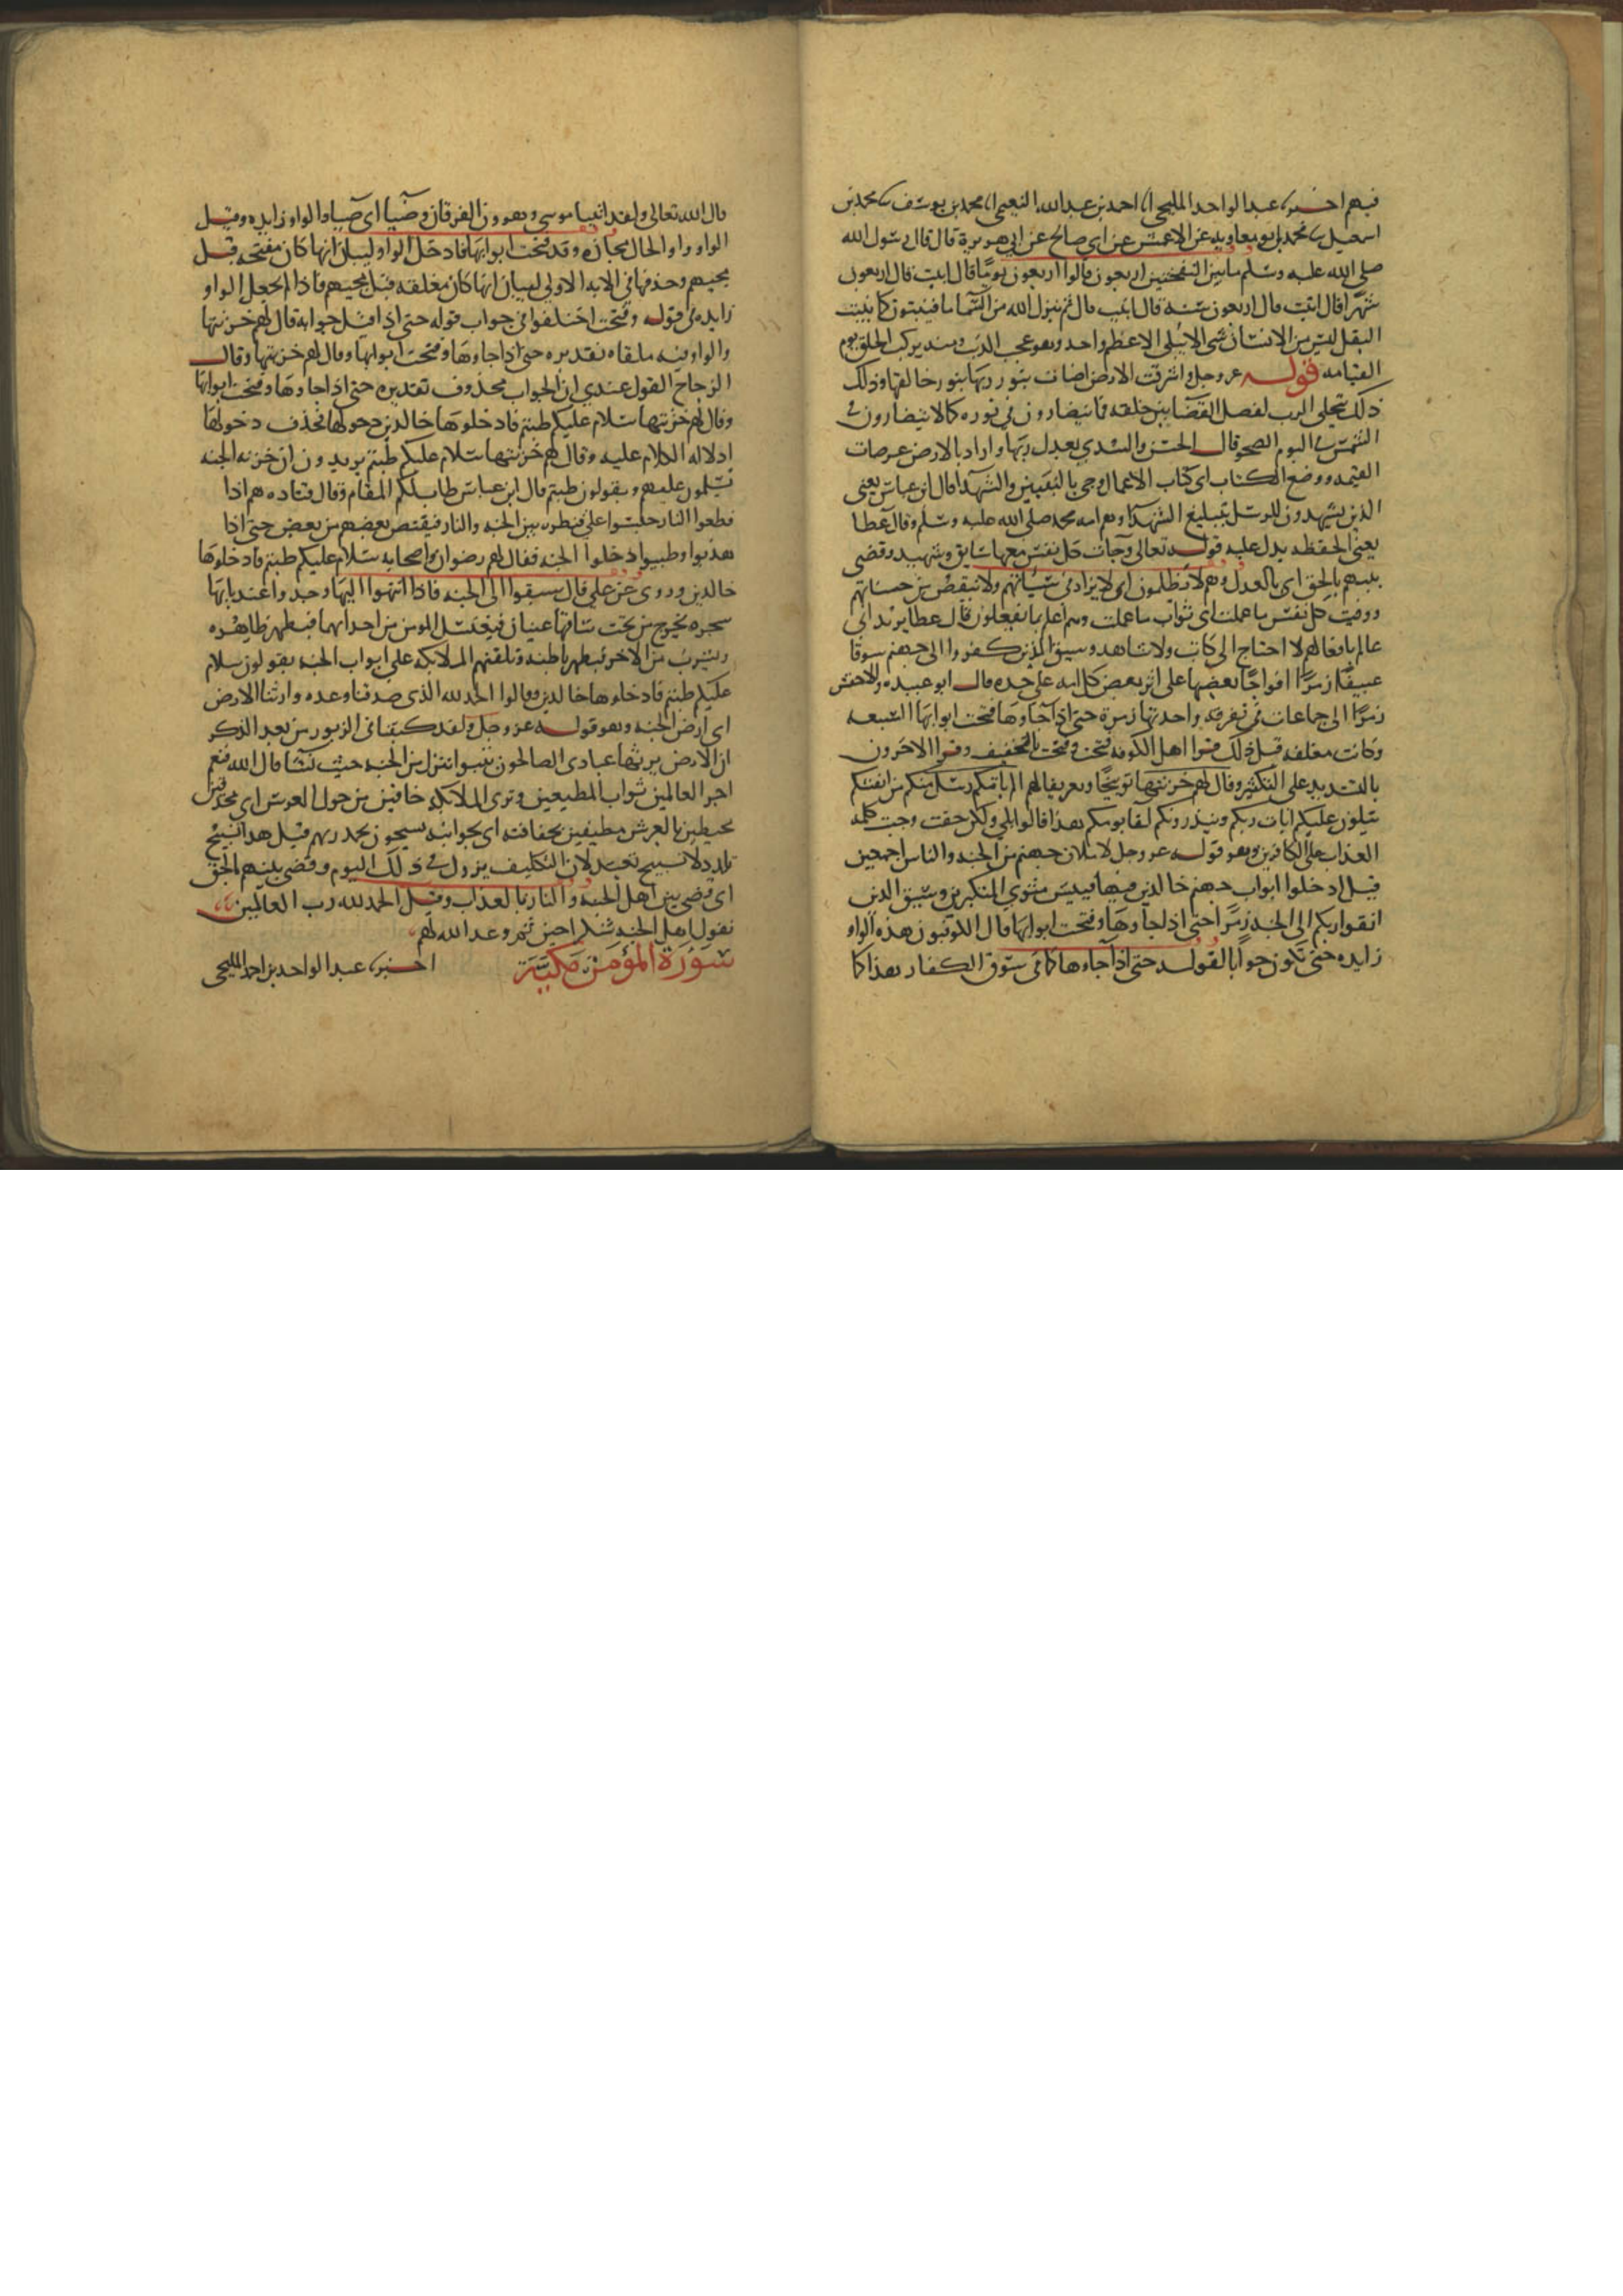 فيهم اخبرنا عبد الواحد المليحي انا احمد بن عبد الله النعيمي انا محمد بن يوسف نا محمد بن
اسمعيل نا محمد انا ابو معاويه عن الاعمش عن ابي صالح عن ابي هريرة قال قال رسول الله
صلى الله عليه وسلم ما بين النفختين اربعون قالوا اربعون يوما قال ابيت قال اربعون
شهرا قال ابيت قال اربعون سنه قال ابيت قال ثم ينزل الله من السما ما فينبتون كما ينبت
البقل ليس من الانسان شي الا يبلى الا عظم واحد وهو عجب الذنب ومنه يركب الخلق يوم
القيامه قوله عز وجل واشرقت الارض اضات بنور ربها بنور خالقها وذلك
ذلك تجلى الرب لفصل القضا بين خلقه فما يتضارون في نوره كما لا يتضارون في
الشمس في اليوم الصحو قال الحسن والسدي بعدل ربها واراد بالارض عرصات
القيمه ووضع الكتاب اى كتاب الاعمال وجى بالنبيين والشهدا قال ابن عباس يعني
الذين يشهدون للرسل بتبليغ الشهدا وهم امه محمد صلى الله عليه وسلم وقال عطا
يعني الحفظه يدل عليه قوله تعالى وجات كل نفس معها سايق وشهيد وقضى
بينهم بالحق اى بالعدل وهم لا يظلمون اى لا يزاد في سياتهم ولا ينقص من حسناتهم
ووفيت كل نفس ما عملت اى ثواب ما عملت وهم اعلم بما يفعلون قال عطا يريد اني
عالم بافعالهم لا احتاج الى كاتب ولا شاهد وسيق الذين كفروا الى جهنم سوقا
عنيفا زمرا افواجا بعضها على اثر بعض كل امه على حده قال ابو عبيده والاخفش
زمرا الى جماعات في تفرقه واحدتها زمرة حتى اذا جاوها فتحت ابوابها السبعه
وكانت مغلقه قبل ذلك قرا اهل الكوفه فتحت وفتحت بالتخفيف وقرا الاخرون
بالتشديد على التكثير وقال لهم خزنتها توبيخا وتعريفا لهم الم ياتكم رسل منكم من انفسكم
يتلون عليكم ايات ربكم وينذرونكم لقا يومكم هذا قالوا بلى ولكن حقت وجبت كلمه
العذاب على الكافرين وهو قوله عز وجل لاملان جهنم من الجنه والناس اجمعين
قيل ادخلوا ابواب جهنم خالدين فيها فبيس مثوى المتكبرين وسيق الذين
اتقوا ربكم الى الجنه زمرا حتى اذا جاوها وفتحت ابوابها قال الكوفيون هذه الواو
زايده حتى تكون جوابا لقوله حتى اذا جاءوها كما في سوق الكفار هذا كما
قال الله تعالى ولقد اتينا موسى وهرون الفرقان وضيا اى ضيا والواو زايده وقيل
الواو واو الحال مجازه وقد فتحت ابوابها فادخل الواو ليبان انها كان مفتحه قبل
مجيهم وحذفها في الايه الاولى لبيان انها كان مغلقه قبل مجيهم فاذا لم يجعل الواو
زايده في قوله وفتحت اختلفوا في جواب قوله حتى اذا قيل جوابه قال لهم خزنتها
والواو فيه ملقاه تقديره حتى اذا جاوها وفتحت ابوابها وقال لهم خزنتها وقال
الزجاج القول عندي ان الجواب محذوف تقديره حتى اذا جاوها وفتحت ابوابها
وقال لهم خزنتها سلام عليكم طبتم فادخلوها خالدين دخولها فحذف دخولها
لدلاله الكلام عليه وقال لهم خزنتها سلام عليكم طبتم يريدون ان خزنه الجنه
يسلمون عليهم ويقولون طبتم قال ابن عباس طاب لكم المقام وقال قتاده هم اذا
قطعوا النار حبسوا على قنطره بين الجنه والنار فيقتص بعضهم من بعض حتى اذا
هذبوا وطيبوا ادخلوا الجنه فقال لهم رضوان واصحابه سلام عليكم طبتم فادخلوها
خالدين وروى عن علي قال سيقوا الى الجنه فاذا انتهوا اليها وجدوا عند بابها
شجره يخرج من تحت ساقها عينان فيغتسل المومن من احداهما فيطهر ظاهره
ويشرب من الاخر فيطهر باطنه وتلقتهم الملايكه على ابواب الجنه يقولون سلام
عليكم طبتم فادخلوها خالدين وقالوا الحمد لله الذى صدقنا وعده وارثنا الارض
اى ارض الجنه وهو قوله عز وجل ولقد كتبنا في الزبور من بعد الذكر
ان الارض يرثها عبادى الصالحون نتبوا ننزل من الجنه حيث نشا قال الله فنعم
اجر العالمين ثواب المطيعين وترى الملايكه حافين من حول العرش اى محدقين
محيطين بالعرش مطيفين بحفافته اى بجوانبه يسبحون بحمد ربهم قيل هذا تسبيح
تلذذ لا تسبيح تعبد لان التكليف يزول في ذلك اليوم وقضى بينهم بالحق
اى قضى بين اهل الجنه والنار بالعذاب وقيل الحمد لله رب العالمين
تقول اهل الجنه شكرا حين تم وعد الله لهم
سورة المؤمن مكية اخبرنا عبد الواحد بن احمد المليحي